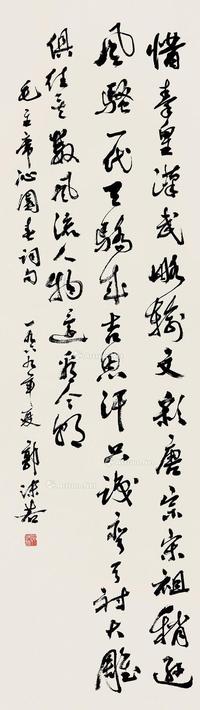 惜秦皇漢武略輸文彩唐宗宋祖稍逊
風騷一代天驕成吉思汗只識弯弓射大雕
俱往矣數風流人物還看今朝
毛主席沁園春詞句 一九六九年夏 郭沫若